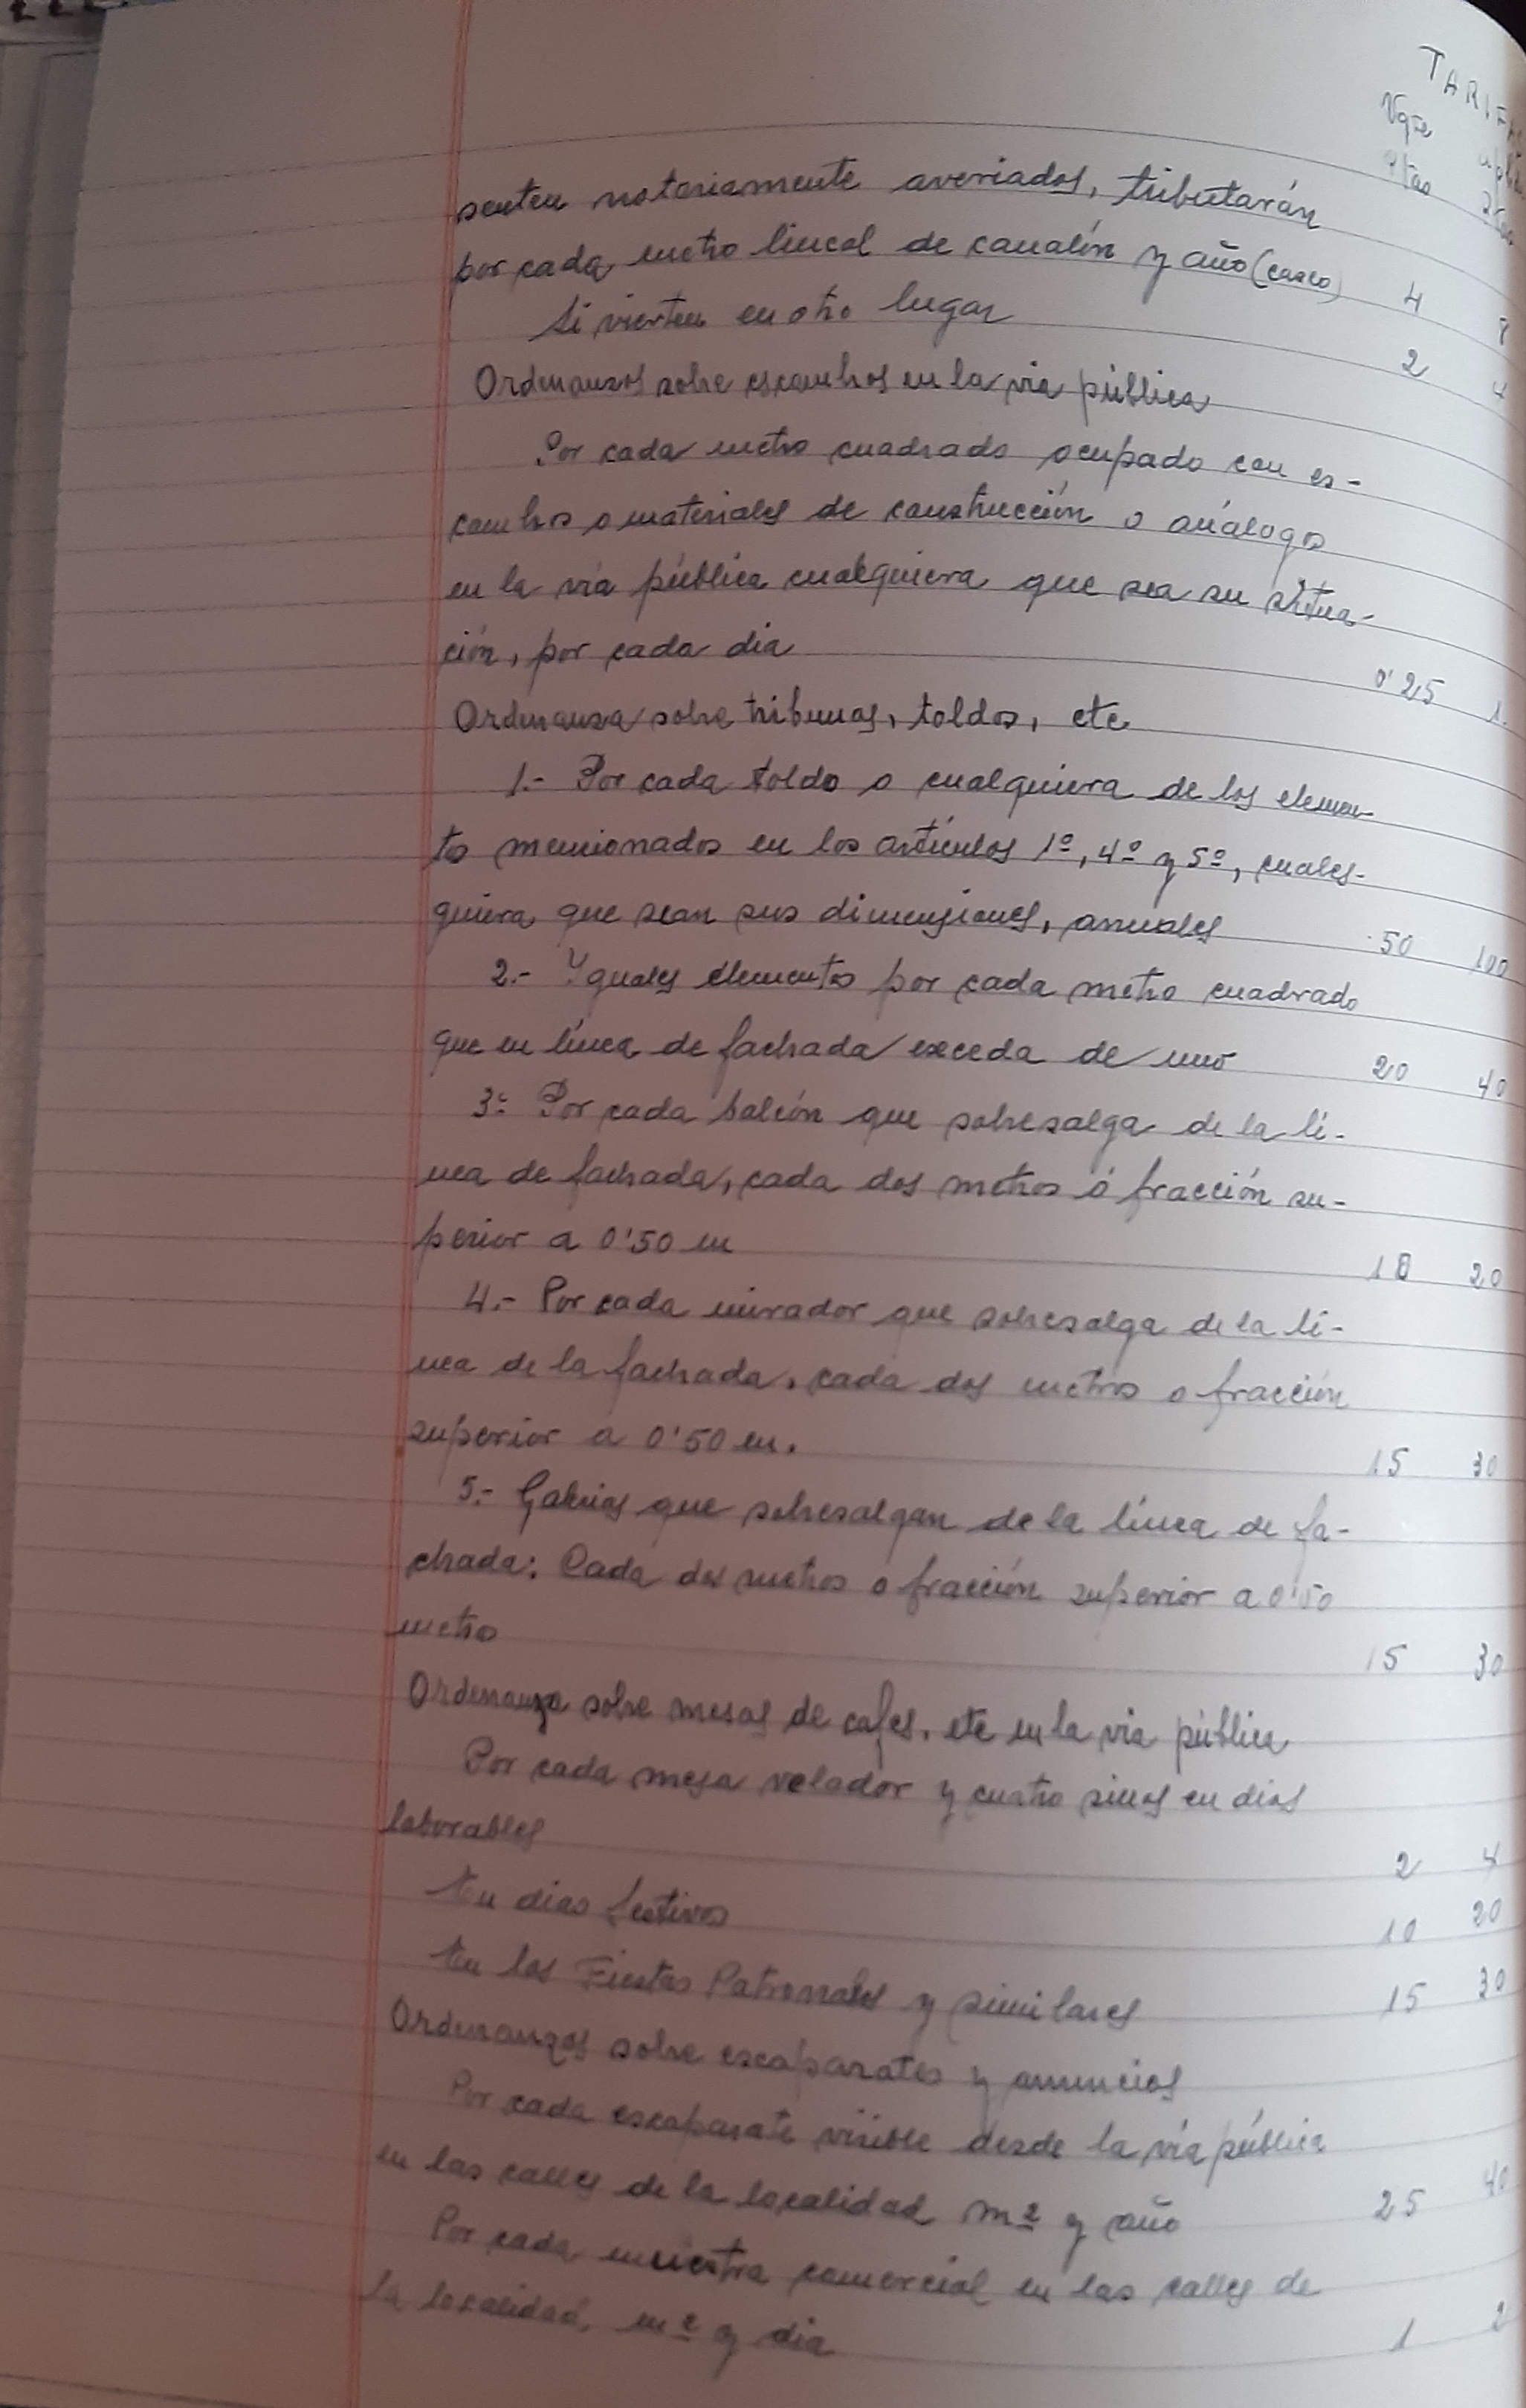 TARIFAS
Vgte
Ptas
senten notoriamente averiados, tributarán
por cada metro lineal de canalón y año (casco) 4 8
Si vierten en otro lugar 2 4
Ordenanzas sobre escombros en la via pública
Por cada metro cuadrado ocupado con es-
combros o materiales de construcción o análogo
en la vía pública cualquiera que sea su situa-
ción, por cada dia 0'25 1.
Ordenanza sobre tribunas, toldos, etc
1.- Por cada toldo o cualquiera de los elemen-
tos mencionados en los artículos 1º, 4º y 5º, cuales-
quiera que sean sus dimensiones, anuales 50 100
2.- Yguales elementos por cada metro cuadrado
que en línea de fachada exceda de uno 20 40
3.- Por cada balcón que sobresalga de la lí-
nea de fachada, cada dos metros ó fracción su-
perior a 0'50 m 10 20
4.- Por cada mirador que sobresalga de la lí-
nea de la fachada, cada dos metros o fracción
superior a 0'50 m. 15 30
5.- Galerias que sobresalgan de la línea de fa-
chada: Cada dos metros o fracción superior a 0'50
metro 15 30
Ordenanza sobre mesas de cafes, etc en la via pública
Por cada mesa velador y cuatro sillas en dias
laborables 2 4
En dias festivos 10 20
En las Fiestas Patronales y similares 15 30
Ordenanzas sobre escaparates y anuncios
Por cada escaparate visible desde la vía pública
en las calles de la localidad m² y año 25 40
Por cada muestra comercial en las calles de
la localidad, m² y dia 1 2